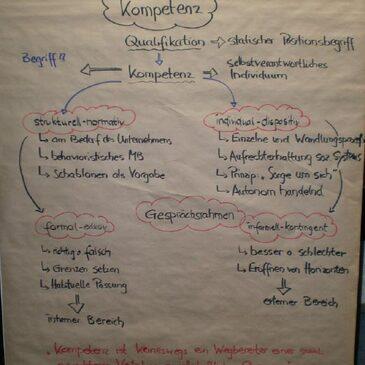 Kompetenz
Qualifikation → statischer Positionsbegriff
Begriff?!
Kompetenz
selbstverantwortliches
Individuum
strukturell-normativ
↳ am Bedarf des Unternehmens
↳ behavioristisches MB
↳ Schablonen als Vorgabe
individual-dispositiv
↳ Einzelne und
↳ Aufrechterhaltung soz. Systems
↳ Prinzip „Sorge um sich“
↳ Autonom handelnd
Gesprächsrahmen
formal-
↳ richtig o falsch
↳ Grenzen setzen
↳ Habituelle Passung
interner Bereich
informell-kontingent
↳ besser o schlechter
↳ Eröffnen von Horizonten
externer Bereich
„Kompetenz ist keineswegs ein Wegbereiter einer